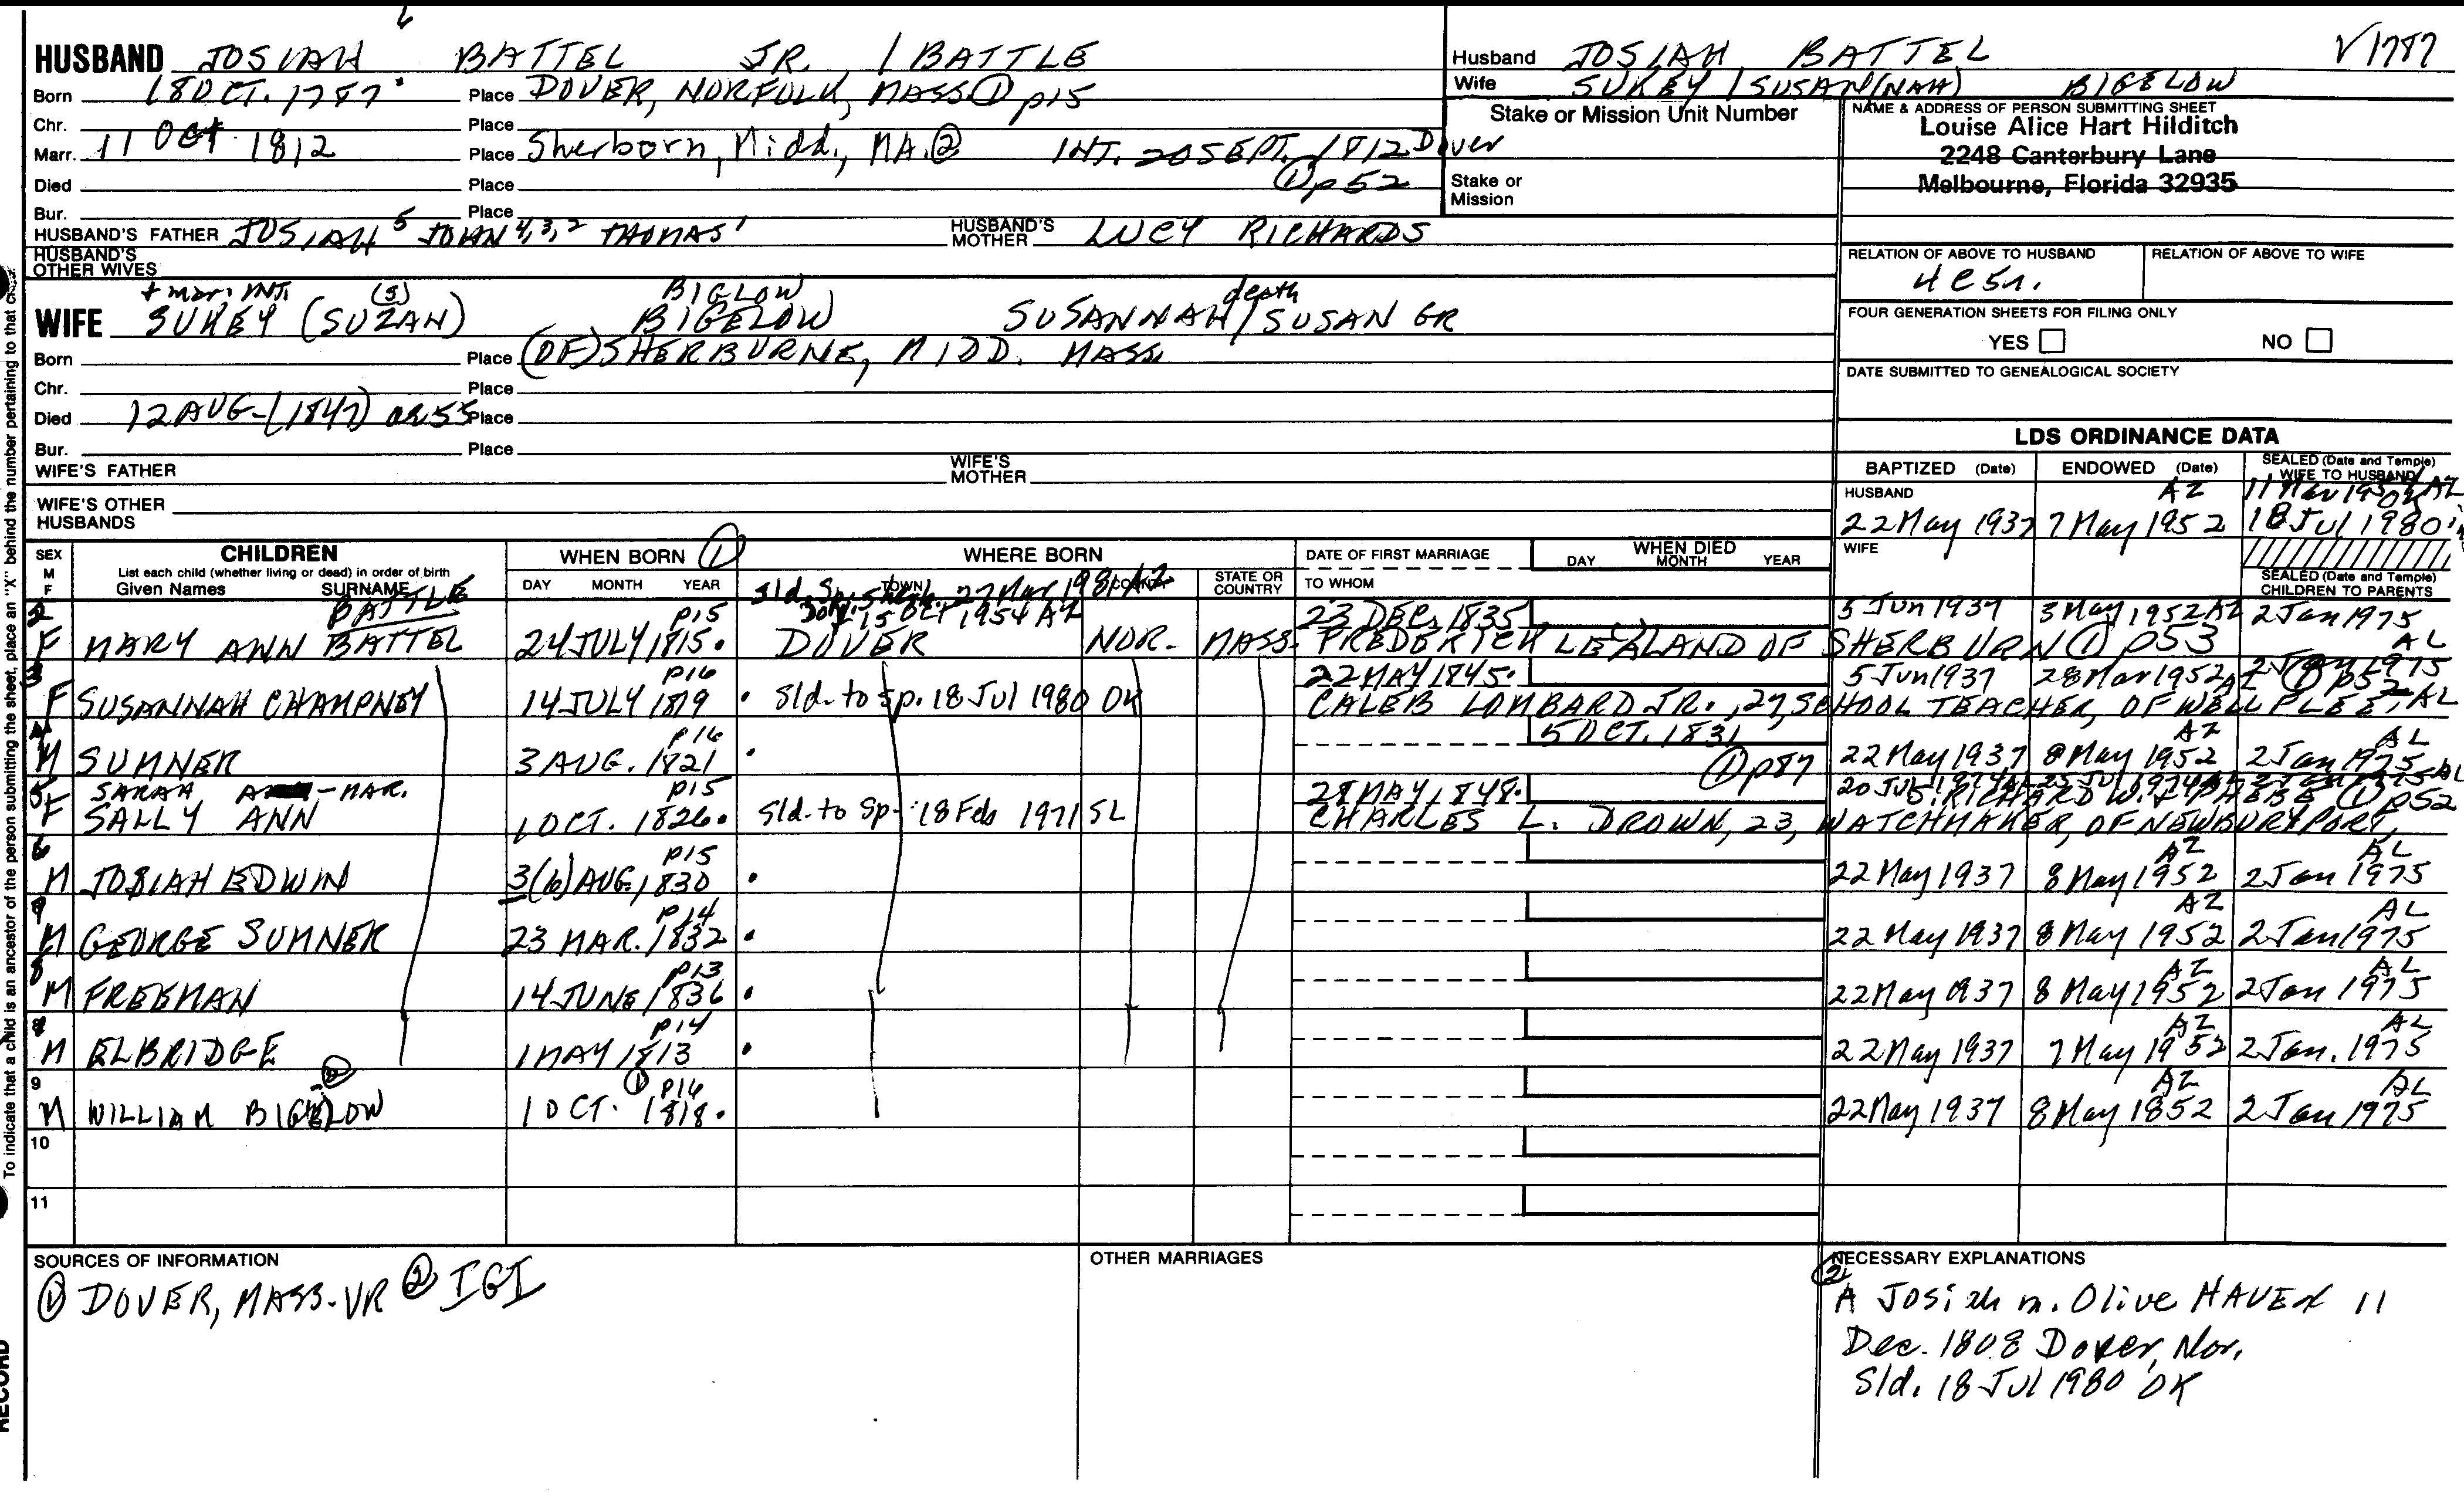 6
HUSBAND JOSIAH BATTEL JR. / BATTLE
Born 18 OCT. 1787 Place DOVER, NORFOLK, MASS ① p15
Chr. Place
Marr. 11 Oct 1812 Place Sherborn, Midd., MA. ② INT. 20 SEPT. 1812 Dover
Died Place ① p52
Bur. Place
HUSBAND'S FATHER JOSIAH 5 JOHN 4,3,2 THOMAS 1 HUSBAND'S MOTHER LUCY RICHARDS
HUSBAND'S OTHER WIVES
+ mar. INT. (S) BIGLOW death
WIFE SUKEY (SUZAN) BIGELOW SUSANNAH / SUSAN GR
Born Place (OF) SHERBURNE, MIDD. MASS
Chr. Place
Died 12 AUG - (1847) ae 55 Place
Bur. Place
WIFE'S FATHER WIFE'S MOTHER
WIFE'S OTHER HUSBANDS
Husband JOSIAH BATTEL V1787
Wife SUKEY / SUSAN(NAH) BIGELOW
Stake or Mission Unit Number
Stake or Mission
NAME & ADDRESS OF PERSON SUBMITTING SHEET
Louise Alice Hart Hilditch
2248 Canterbury Lane
Melbourne, Florida 32935
RELATION OF ABOVE TO HUSBAND RELATION OF ABOVE TO WIFE
4C5r.
FOUR GENERATION SHEETS FOR FILING ONLY
YES NO
DATE SUBMITTED TO GENEALOGICAL SOCIETY
LDS ORDINANCE DATA
BAPTIZED (Date) ENDOWED (Date) SEALED (Date and Temple) WIFE TO HUSBAND
HUSBAND AZ 11 Mar AZ
22 May 1937 7 May 1952 18 Jul 1980 OK
WIFE
SEALED (Date and Temple) CHILDREN TO PARENTS
SEX M F CHILDREN WHEN BORN ① WHERE BORN DATE OF FIRST MARRIAGE WHEN DIED
List each child (whether living or dead) in order of birth
Given Names SURNAME DAY MONTH YEAR TOWN COUNTY STATE OR COUNTRY TO WHOM DAY MONTH YEAR
Sld. Sp. 27 Mar 1981 AZ
BATTLE p15 15 OCT 1954 AZ 23 DEC. 1835 5 Jun 1937 3 May 1952 AZ 2 Jan 1975
2 F MARY ANN BATTEL 24 JULY 1815. DOVER NOR. MASS. FREDERICK LELAND OF SHERBURN ① p53 AL
p16 22 MAY 1845. 5 Jun 1937 28 Mar 1952 AZ 2 Jan 1975 ① p52
3 F SUSANNAH CHAMPNEY 14 JULY 1819 . Sld. to Sp. 18 Jul 1980 OK CALEB LOMBARD JR., 27, SCHOOL TEACHER, OF WELLFLEET, AL
p16 5 OCT. 1831 AZ AL
4 M SUMNER 3 AUG. 1821 . ① p87 22 May 1937 8 May 1952 2 Jan 1975
SARAH - MAR. p15 28 MAY, 1848. 20 Jul 1974 AL 25 Jul 1974 AL 2 Jan 1975 AL
S. RICHARD W. + PHEBE ① p52
5 F SALLY ANN 1 OCT. 1826. Sld. to Sp - 18 Feb 1971 SL CHARLES L. DROWN, 23, WATCHMAKER, OF NEWBURYPORT,
p15 AZ AL
6 M JOSIAH EDWIN 3(6) AUG. 1830 . 22 May 1937 8 May 1952 2 Jan 1975
p14 AZ AL
M GEORGE SUMNER 23 MAR. 1832 . 22 May 1937 8 May 1952 2 Jan 1975
p13 AZ AL
8 M FREEMAN 14 JUNE 1836 . 22 May 1937 8 May 1952 2 Jan 1975
p14 AZ AL
M ELBRIDGE 1 MAY 1813 . 22 May 1937 7 May 1952 2 Jan. 1975
② ① p16 AZ AL
9 M WILLIAM BIGELOW 1 OCT. 1818. 22 May 1937 8 May 1852 2 Jan 1975
10
11
SOURCES OF INFORMATION
① DOVER, MASS. VR ② IGI
OTHER MARRIAGES
NECESSARY EXPLANATIONS
②
A Josiah m. Olive HAVEN 11
Dec. 1808 Dover, Nor.
Sld. 18 Jul 1980 OK
To indicate that a child is an ancestor of the person submitting the sheet, place an "X" behind the number pertaining to that
RECORD